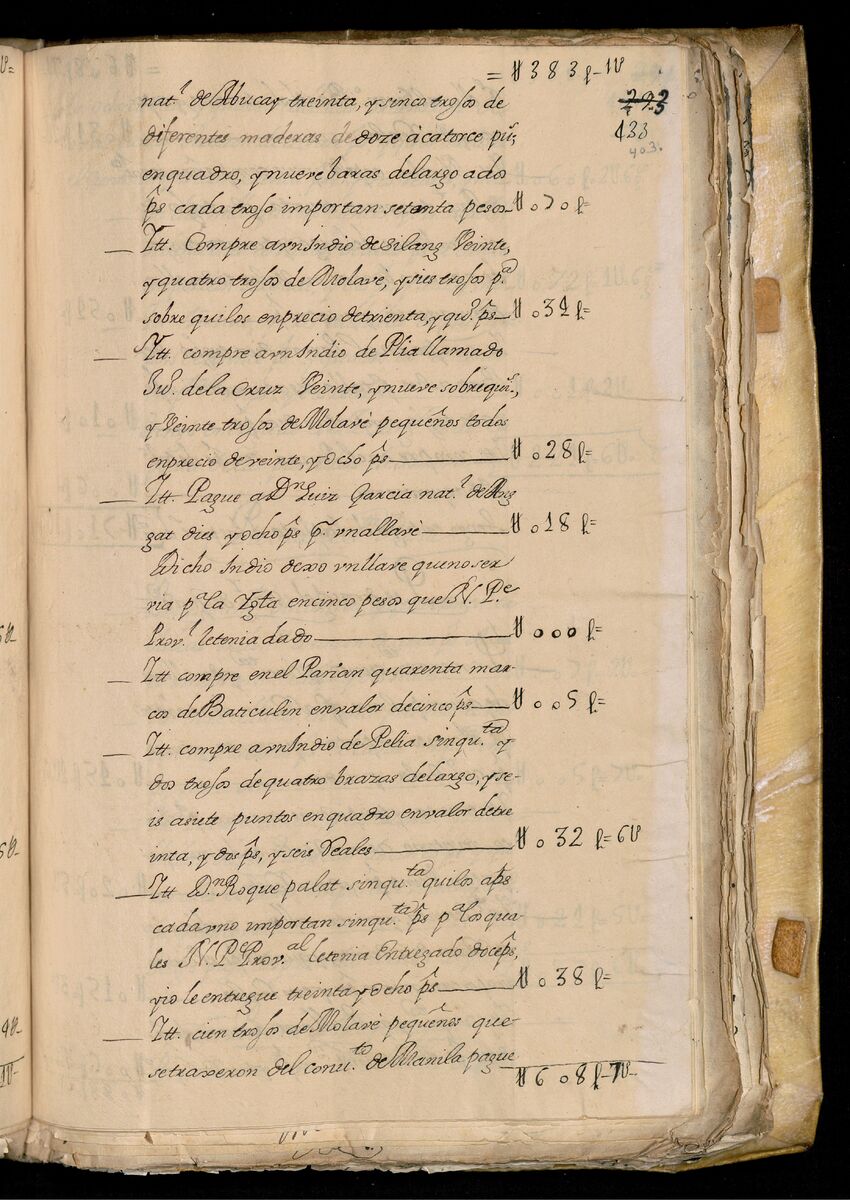 = U383p-1U
nat.l de Abucay treinta, y sinco trosos de
diferentes maderas de doze à catorce pũs,
en quadro, y nueve baras de largo a dos
p̂s cada troso importan setenta pesos_U070p=
Itt. Compre a vn Indio de Silang Veinte,
y quatro trosos de Molave, y sies trosos p.a
sobre quilos en precio de trienta, y qu.o p̂s_U034p=
Itt. compre a vn Indio de Pilia llamado
Ju.o de la Cruz Veinte, y nueve sobrequi.s,
y Veinte trosos de Molavè pequeños todos
en precio de veinte, y ocho p̂s_U028p=
Itt. Pague a Dn Luiz Garcia nat.l de Ang
gat dies y ocho p̂s p.r vna llavè_U018p=
Dicho Indio dexo vn llave que no ser
via p.a la Ygta en cinco pesos que N. P.e
Prov.l le tenia dado_U000p=
Itt compre en el Parian quarenta mar-
cos de Baticulin en valor de cinco p̂s_U005p=
Itt. compre a vn Indio de Pelia sinqu.ta y
dos trosos de quatro brazas de largo, y se-
is a siete puntos en quadro en valor de tre
inta, y dos p̂s, y seis Reales_U032p=6U
Itt Dn Roque palat sinqu.ta quilos a p̂s
cada vno importan sinqu.ta p̂s p.a los qua-
les N. P.e Prov.al le tenia Entregado doce p̂s,
y io le entregue treinta y ocho p̂s_U038p=
Itt. cien trosos de Molavè pequeños que
se traxeron del conu.to de Manila pague
U608p-7U
293
433
403.